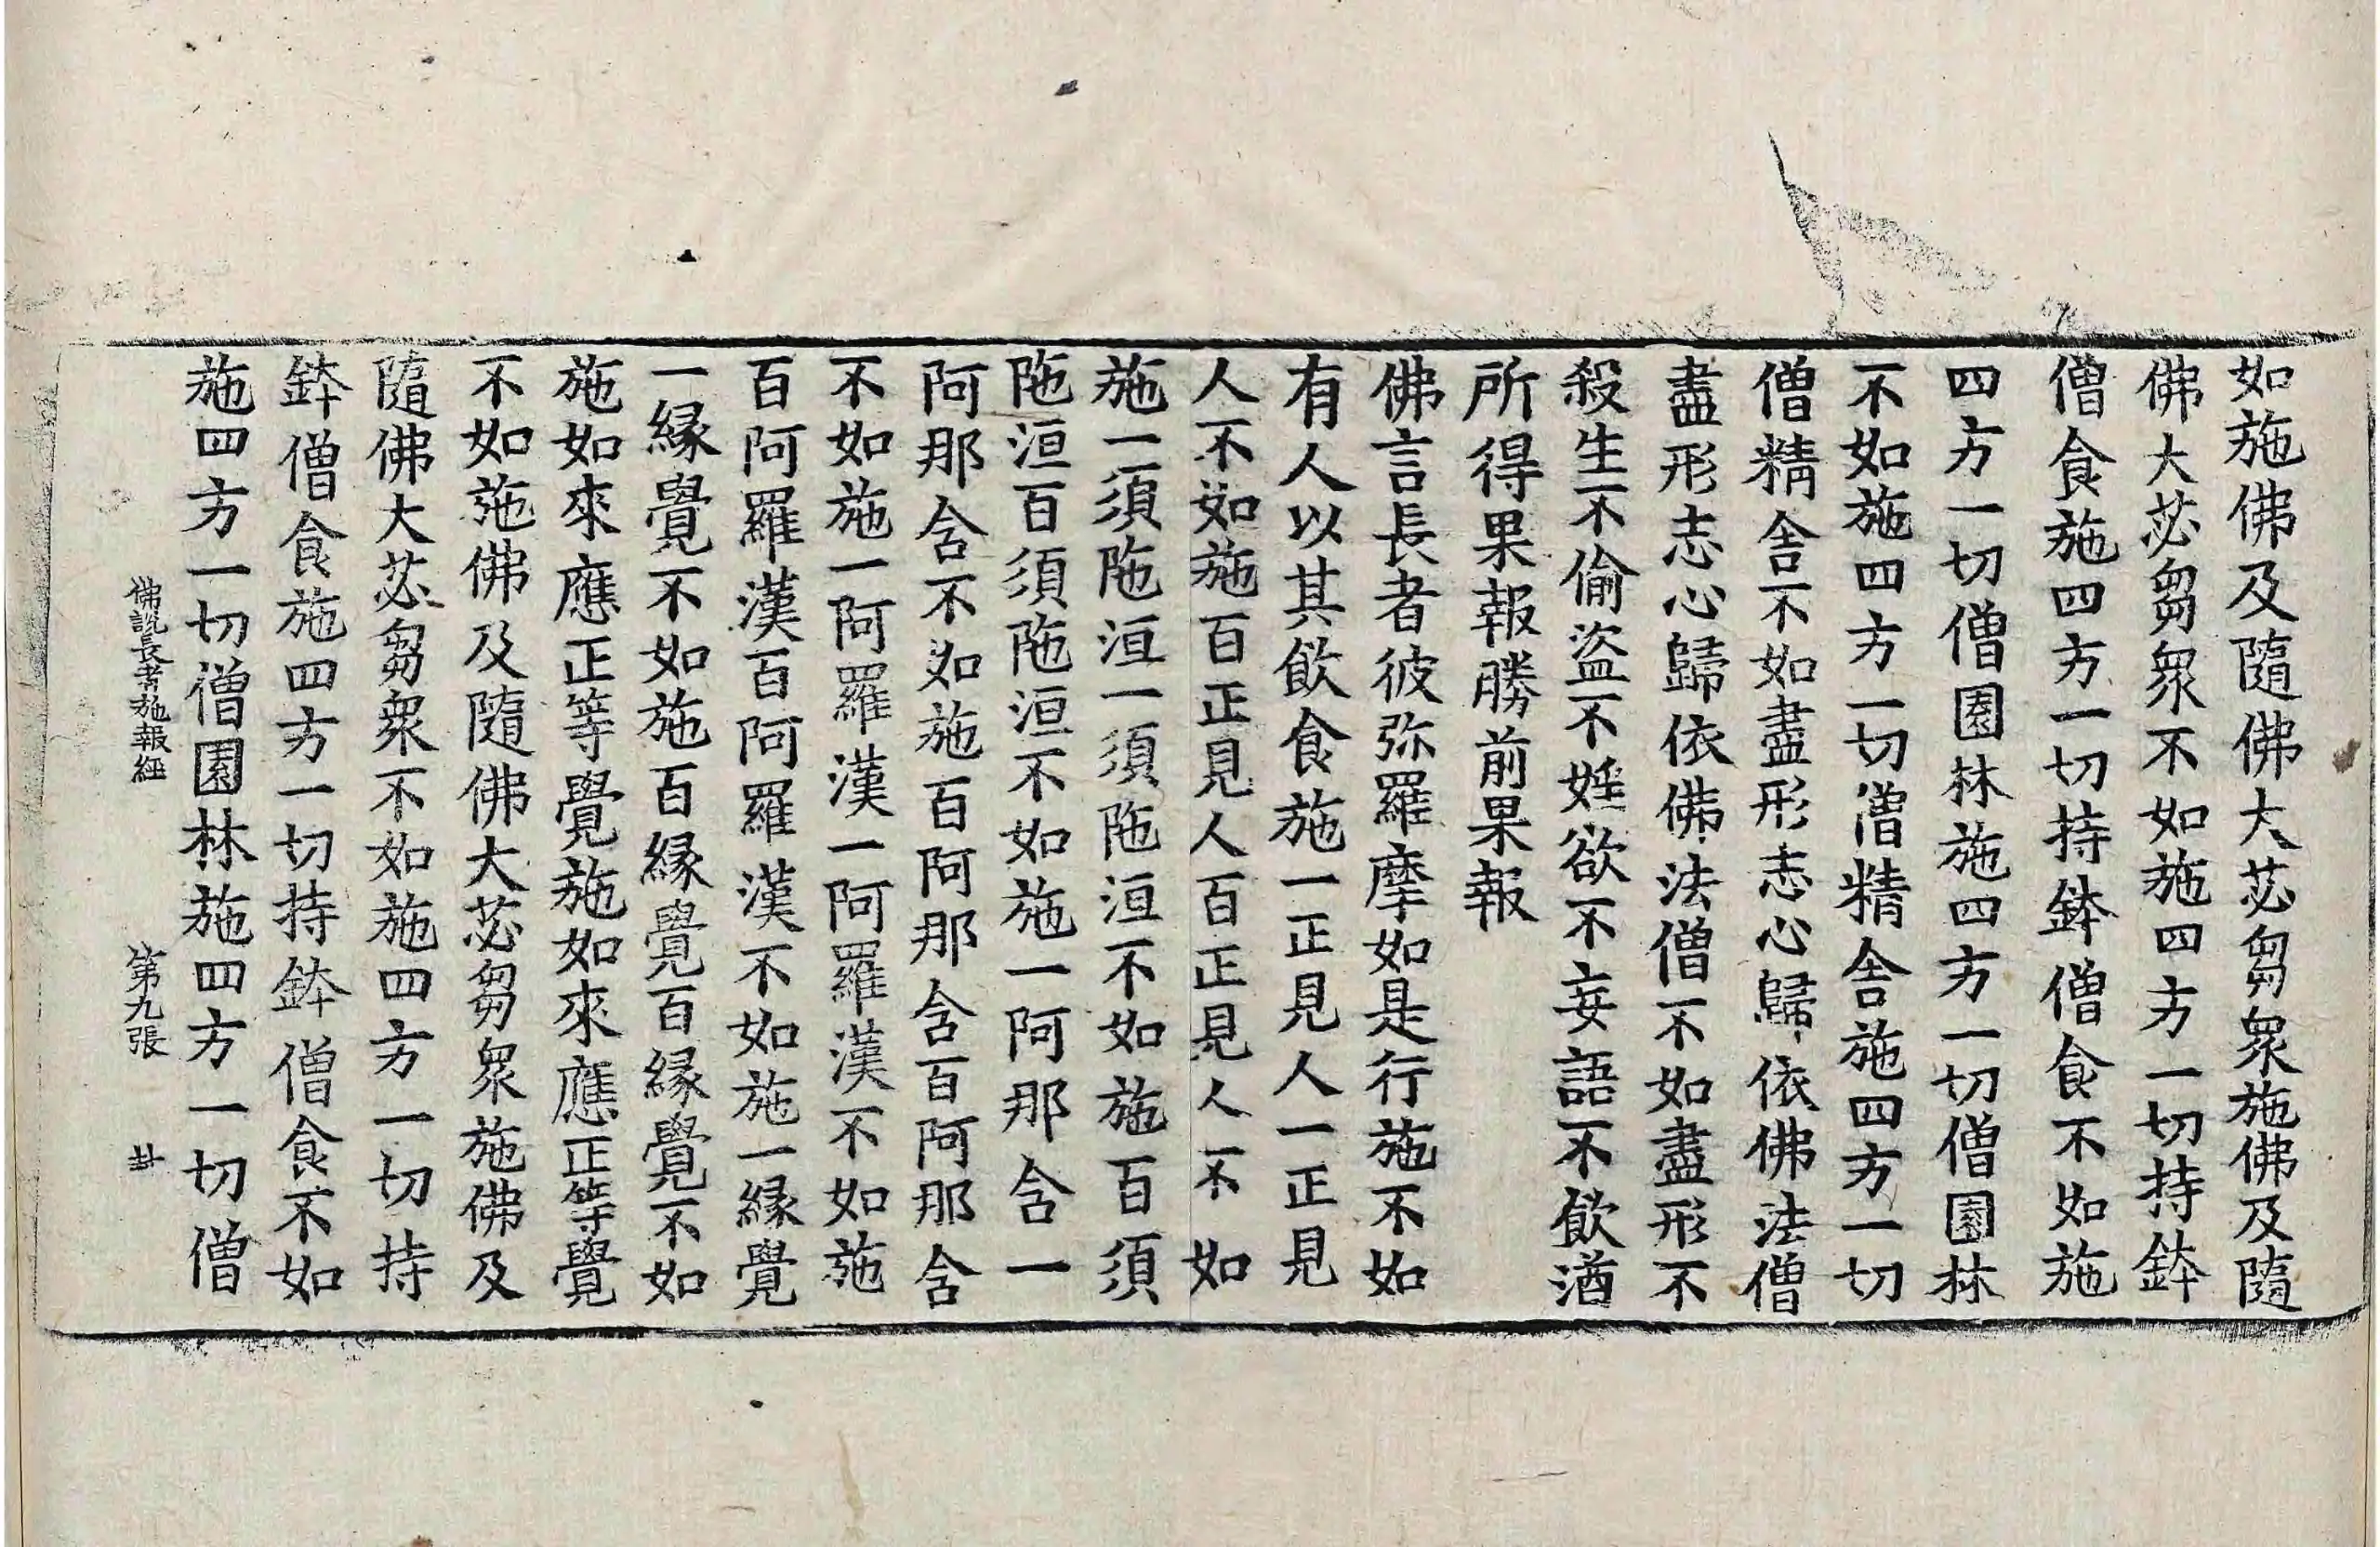 如施佛及隨佛大苾芻衆施佛及隨
佛大苾芻衆不如施四方一切持鉢
僧食施四方一切持鉢僧食不如施
四方一切僧園林施四方一切僧園林
不如施四方一切僧精舍施四方一切
僧精舍不如盡形志心歸依佛法僧
盡形志心歸依佛法僧不如盡形不
殺生不偷盜不婬欲不妄語不飲酒
所得果報勝前果報
佛言長者彼弥羅摩如是行施不如
有人以其飲食施一正見人一正見
人不如施百正見人百正見人不如
施一須陁洹一須陁洹不如施百須
陁洹百須陁洹不如施一阿那含一
阿那含不如施百阿那含百阿那含
不如施一阿羅漢一阿羅漢不如施
百阿羅漢百阿羅漢不如施一緣覺
一緣覺不如施百緣覺百緣覺不如
施如來應正等覺施如來應正等覺
不如施佛及隨佛大苾芻衆施佛及
隨佛大苾芻衆不如施四方一切持
鉢僧食施四方一切持鉢僧食不如
施四方一切僧園林施四方一切僧
佛說長者施報經 第九張